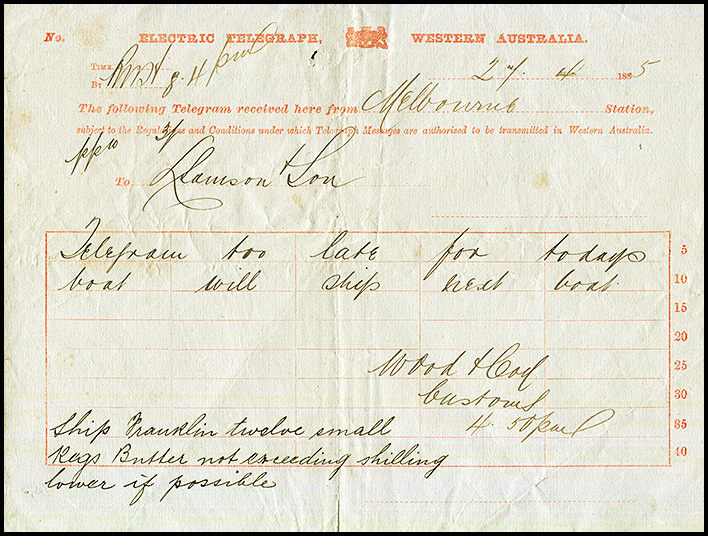 No. ELECTRIC TELEGRAPH, WESTERN AUSTRALIA.
TIME
BY 8.4 pm 27. 4 1885
The following Telegram received here from Melbourne Station,
subject to the Regulations and Conditions under which Telegraph Messages are authorised to be transmitted in Western Australia.
To Lamson & Son
Telegram too late for todays 5
boat will ship next boat. 10
15
20
Wood & Coy 25
Customs 30
4.50pm 35
Ship Franklin twelve small
Kegs Butter not exceeding shilling 40
lower if possible